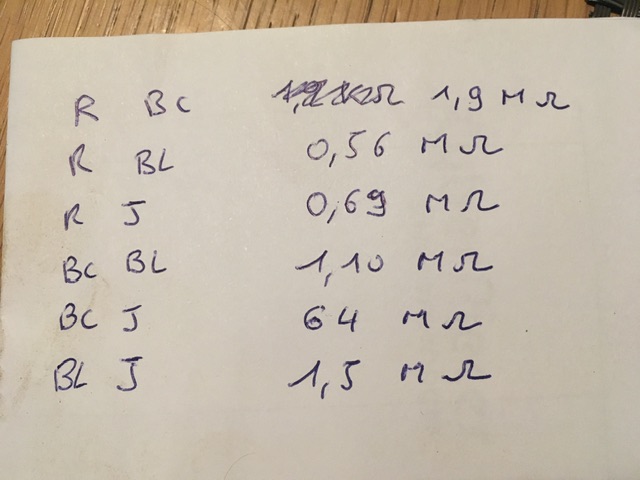 R BC 1,9 MΩ
R BL 0,56 MΩ
R J 0,69 MΩ
BC BL 1,10 MΩ
BC J 64 MΩ
BL J 1,5 MΩ